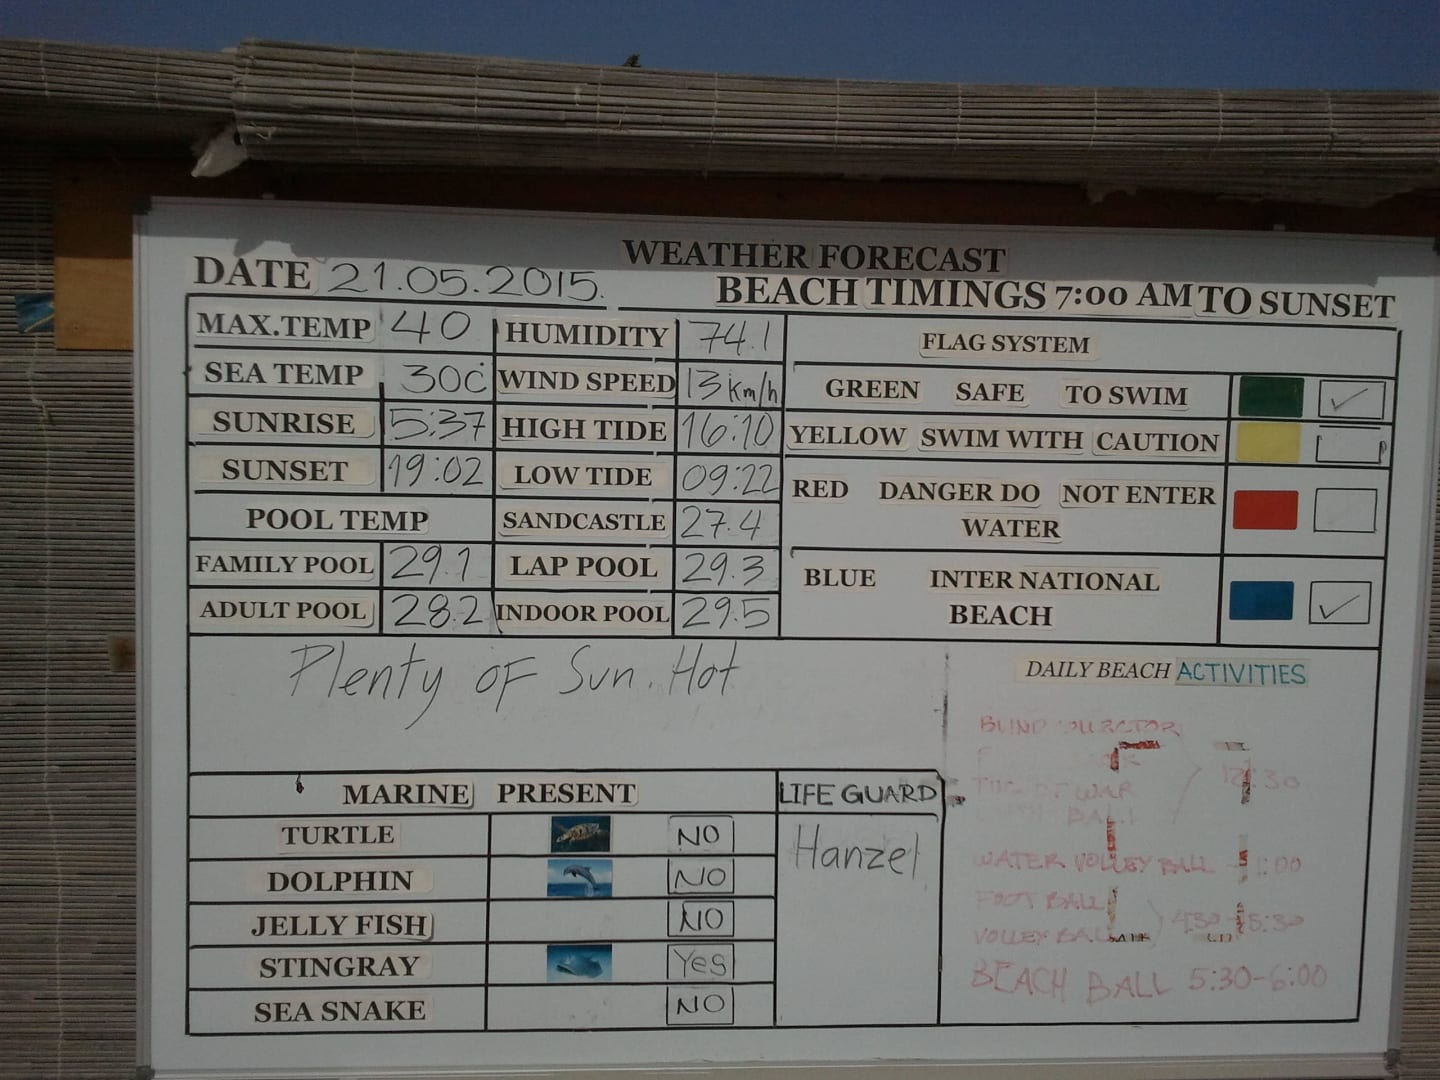 WEATHER FORECAST
DATE 21.05.2015.
BEACH TIMINGS 7:00 AM TO SUNSET
MAX.TEMP 40 HUMIDITY 74.1
SEA TEMP 30C WIND SPEED 13 km/h
SUNRISE 5:37 HIGH TIDE 16:10
SUNSET 19:02 LOW TIDE 09:22
POOL TEMP SANDCASTLE 27.4
FAMILY POOL 29.1 LAP POOL 29.3
ADULT POOL 28.2 INDOOR POOL 29.5
FLAG SYSTEM
GREEN SAFE TO SWIM
YELLOW SWIM WITH CAUTION
RED DANGER DO NOT ENTER
WATER
BLUE INTER NATIONAL
BEACH
Plenty of Sun. Hot
MARINE PRESENT
TURTLE NO
DOLPHIN NO
JELLY FISH NO
STINGRAY Yes
SEA SNAKE NO
LIFE GUARD
Hanzel
DAILY BEACH ACTIVITIES
BLIND
OF WAR
BALL
WATER VOLLEY BALL
FOOT BALL
VOLLEY BALL
BEACH BALL 5:30-6:00